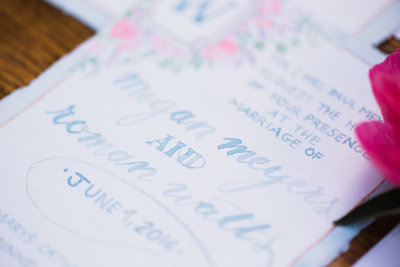 W
AND MRS. PAUL ME
REQUEST THE H
OF YOUR PRESENCE
AT THE
MARRIAGE OF
megan meyers
AND
roman walts
JUNE 1, 2016